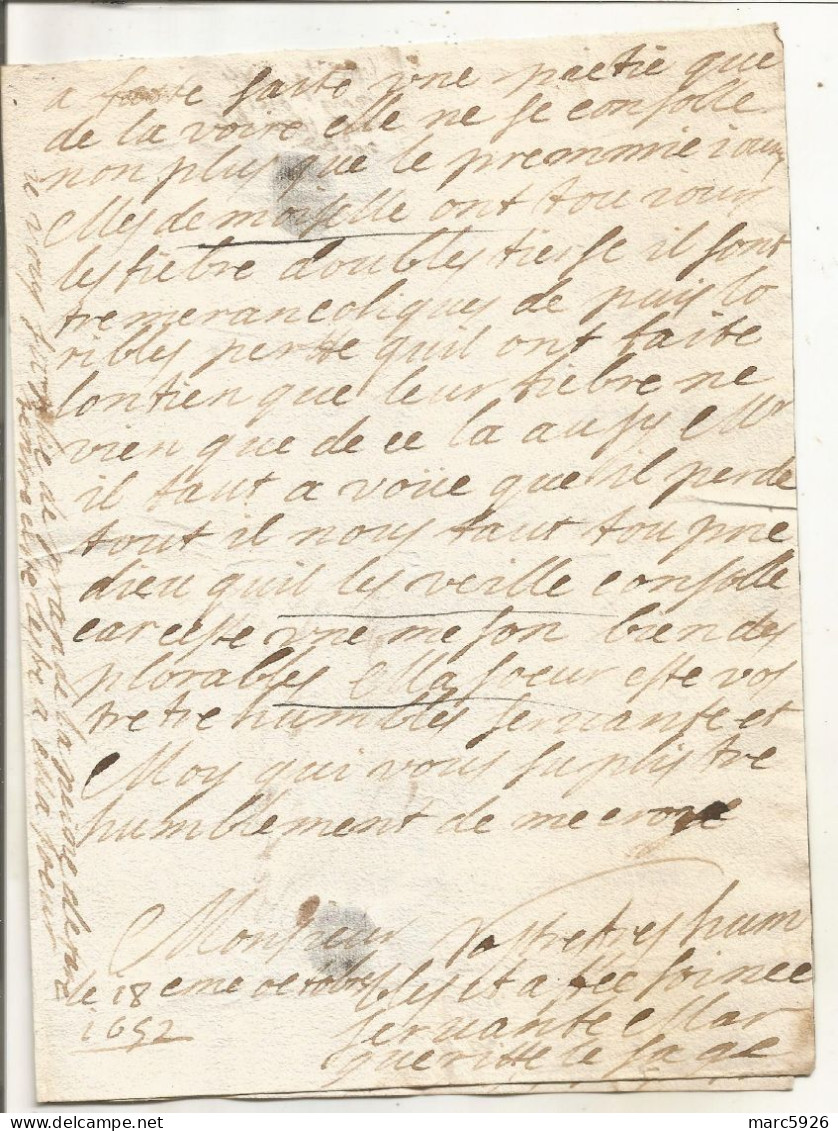 a faite une pietie que
de la voire elle ne se consolle
non plus que le premmie iour
Mes demoiselle ont tou iour
les fiebre doubles tierse il sont
tremerancoliques de puis lo
ribles pertte quil ont faite
lontien que leur fiebre ne
vien que de ce la ausy Mr
il faut a voüe que il perde
tout il nous faut tou prie
dieu quil les veille consolle
car ceste une meson bien des
plorables Ma soeur este vos
tre tre humbles seruante et
Moy qui vous suplis tre
humblement de me croye
Monsieur Vostre tres hum
bles et afecsoinee
seruante Mar
gueritte le sage
le 18 eme octobre
1692
ie vous suplie de
a Ma soeur
marc5926